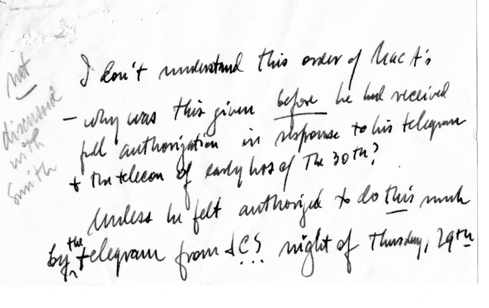 not
discussed
with
Smith
I don't understand this order of MacA's
– why was this given before he had received
full authorization in response to his telegram
+ the telecon of early hrs of the 30th?
Unless he felt authorized to do this much
by the telegram from JCS night of Thursday, 29th